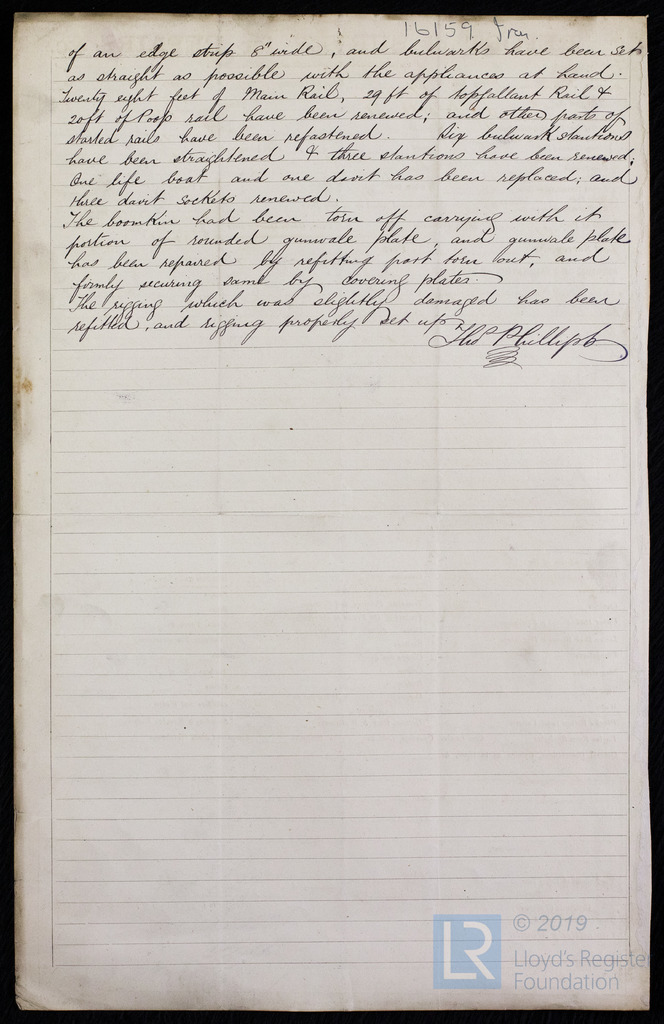 16159 Iron
of an edge strip 8" wide, and bulwarks have been set
as straight as possible with the appliances at hand.
Twenty eight feet of Main Rail, 29 ft of topgallant Rail &
20 ft of Poop rail have been renewed; and other parts of
started rails have been refastened. Six bulwark stantions
have been straightened & three stantions have been renewed;
One life boat and one davit has been replaced; and
three davit sockets renewed.
The boomkin had been torn off carrying with it
portion of rounded gunwale plate, and gunwale plate
has been repaired by refitting part torn out, and
firmly securing same by covering plates.
The rigging which was slightly damaged has been
refitted, and rigging properly set up
Thos Phillips
LR
© 2019
Lloyd's Register
Foundation